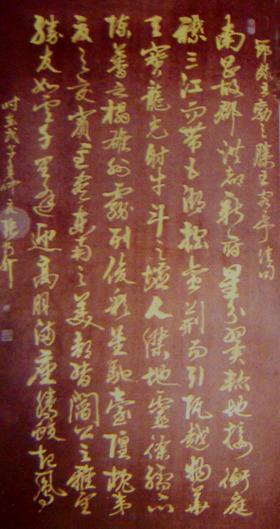 節錄王勃之滕王閣序佳句
南昌故郡洪都新府星分翼軫地接衡廬
襟三江而帶五湖控蠻荊而引甌越物華
天寶龍光射牛斗之墟人傑地靈徐孺下
陳蕃之榻雄州霧列俊彩星馳臺隍枕夷
夏之交賓主盡東南之美都督閻公之雅望
勝友如雲千里逢迎高朋滿座騰蛟起鳳